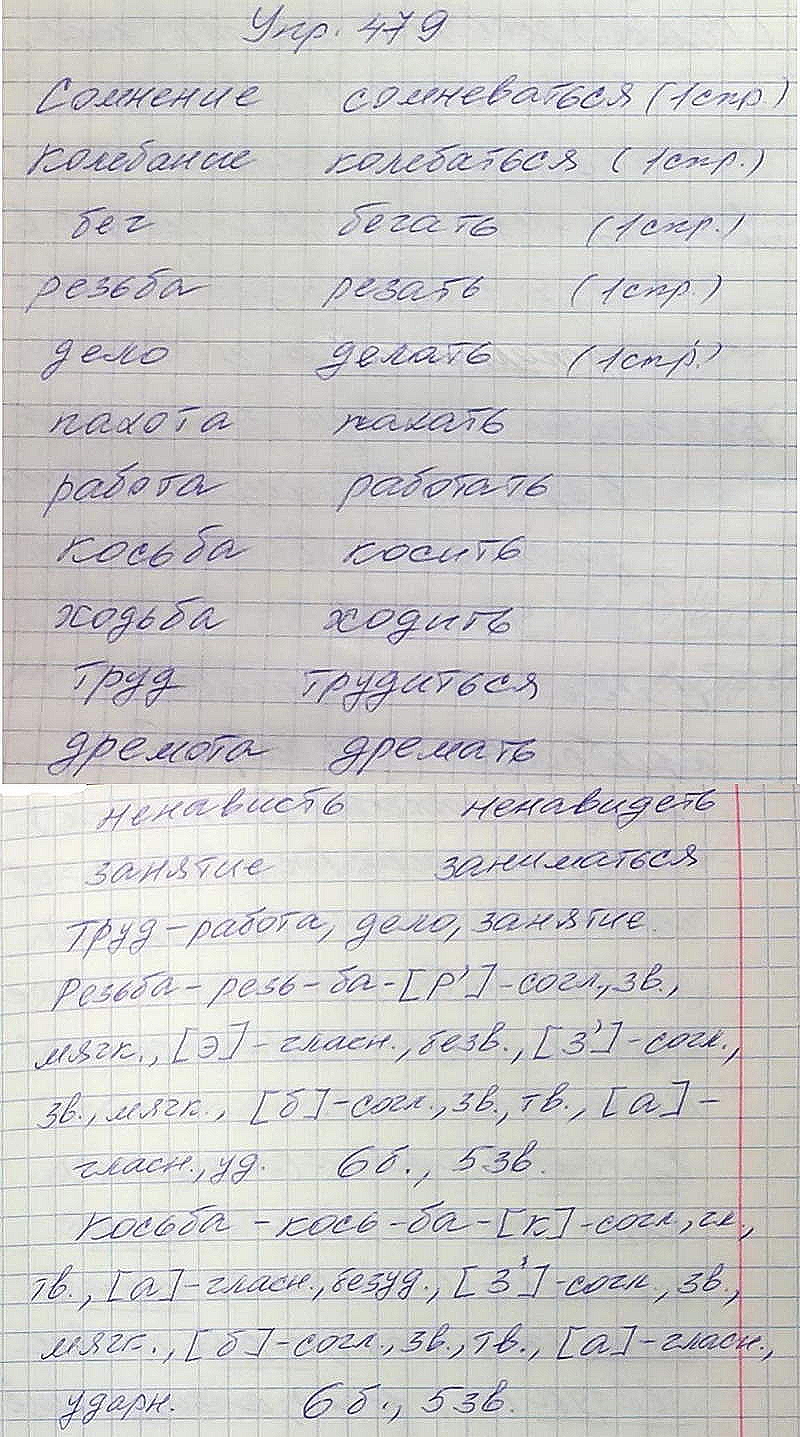 Упр. 479
Сомнение сомневаться (1спр.)
Колебание колебаться (1спр.)
бег бегать (1спр.)
резьба резать (1спр.)
дело делать (1спр.)
пахота пахать
работа работать
косьба косить
ходьба ходить
труд трудиться
дремота дремать
ненависть ненавидеть
занятие заниматься
Труд - работа, дело, занятие.
Резьба - резь - ба - [р'] - согл., зв.,
мягк., [э] - гласн., безв., [з'] - согл.,
зв., мягк., [б] - согл., зв., тв., [а] -
гласн., уд. 6 б., 5 зв.
Косьба - кось - ба - [к] - согл., гл.,
тв., [а] - гласн., безуд., [з'] - согл., зв.,
мягк., [б] - согл., зв., тв., [а] - гласн.,
ударн. 6 б., 5 зв.